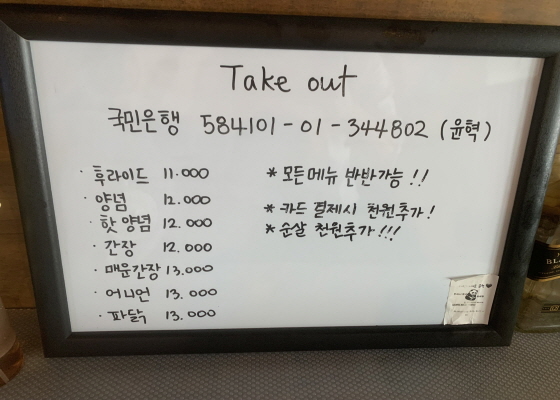 Take out
국민은행 584101-01-344802 (윤혁)
· 후라이드 11.000
· 양념 12.000
· 핫 양념 12.000
· 간장 12.000
· 매운간장 13.000
· 어니언 13.000
· 파닭 13.000
* 모든메뉴 반반가능!!
* 카드 결제시 천원추가!
* 순살 천원추가!!!